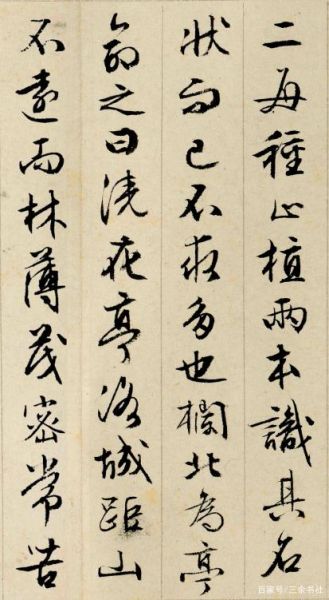 二每种止植兩本識其名
狀而已不求多也欄北為亭
命之曰澆花亭洛城距山
不遠而林薄茂密常苦
百家号/三余书社